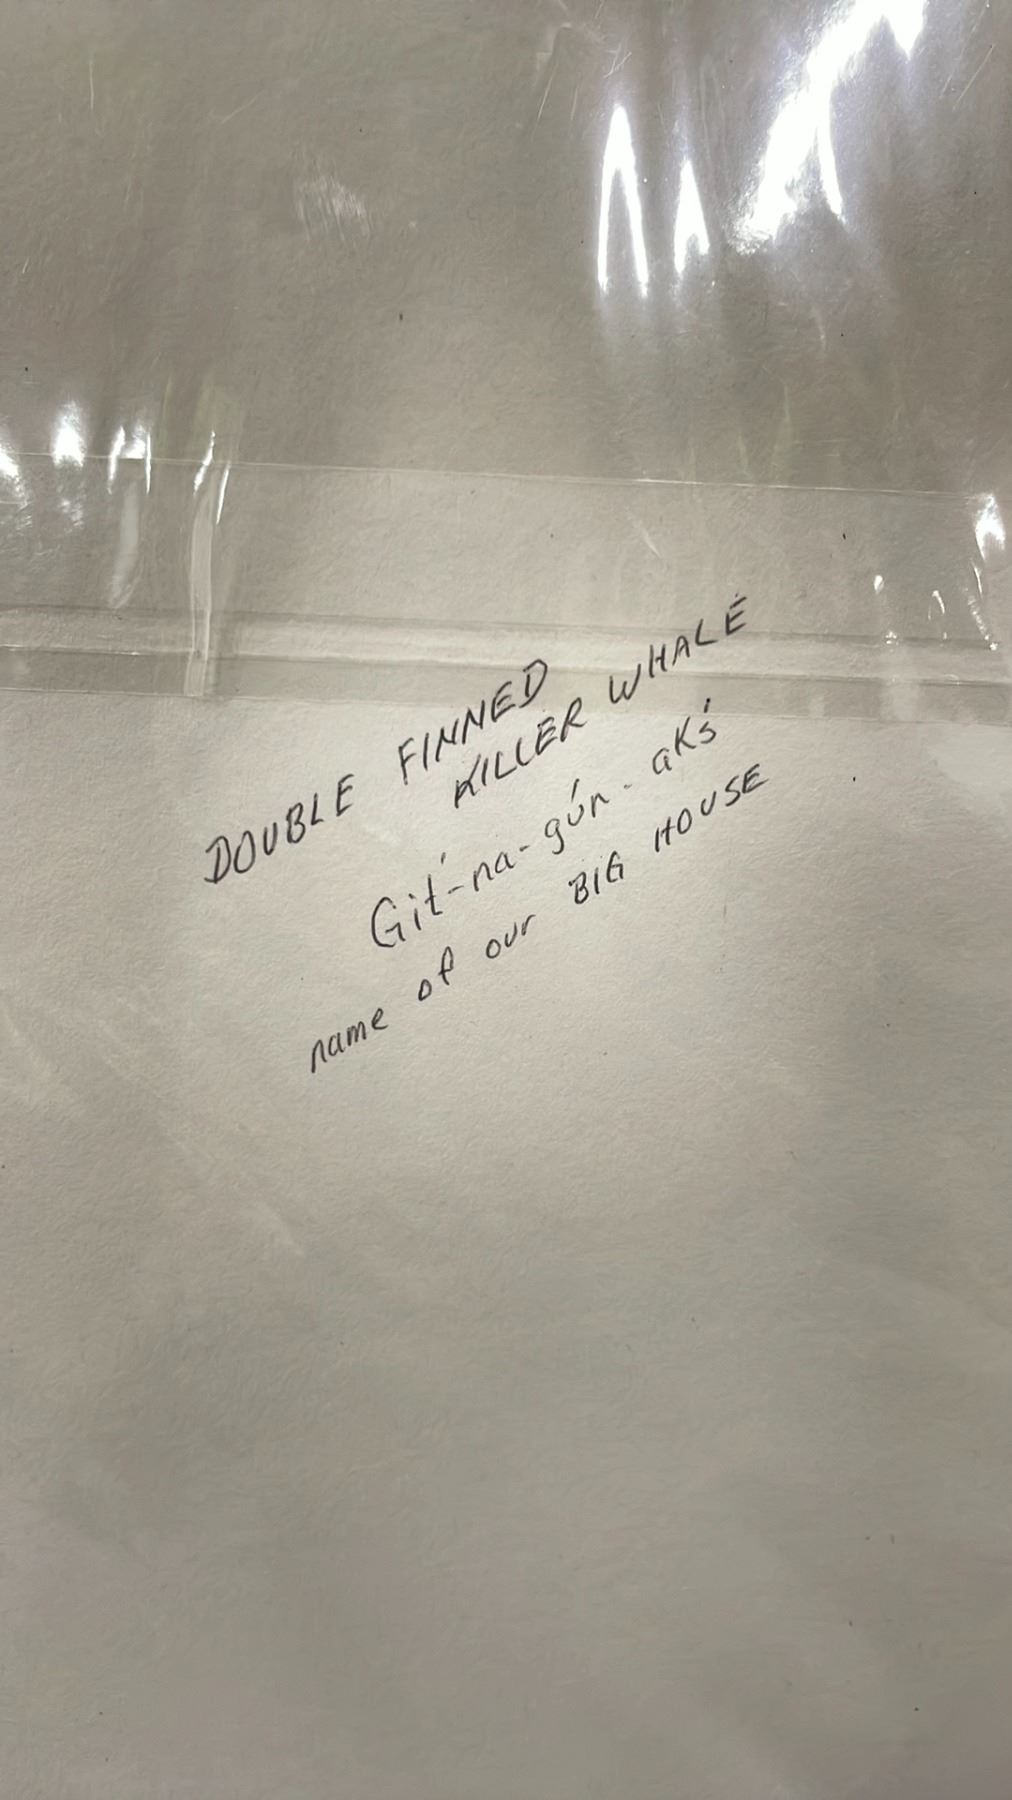 DOUBLE FINNED
KILLER WHALE
Git́-na-gún-akś
name of our BIG HOUSE